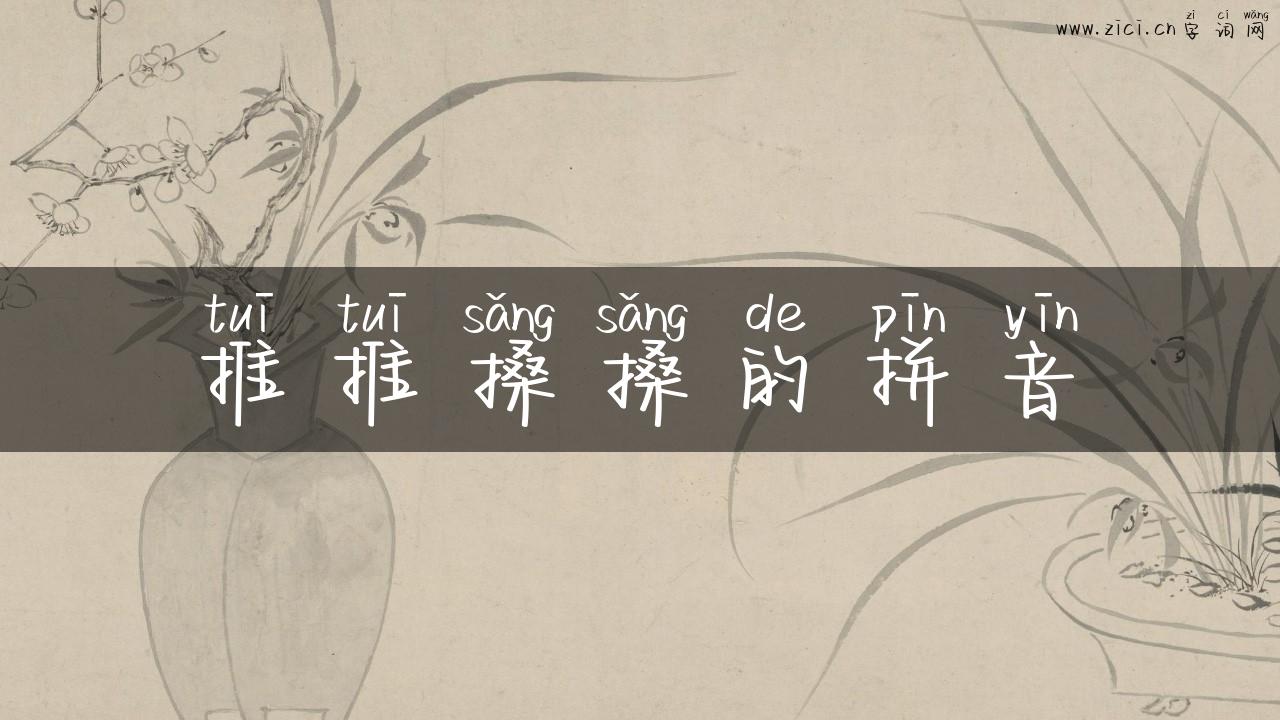 zì cí wǎng
www.zici.cn 字词网
tuī tuī sǎng sǎng de pīn yīn
推推搡搡的拼音